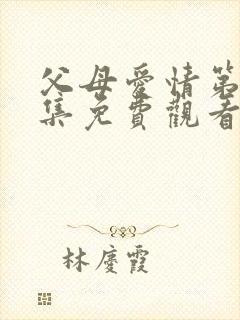 父母愛情第
集免費觀看
林慶霞